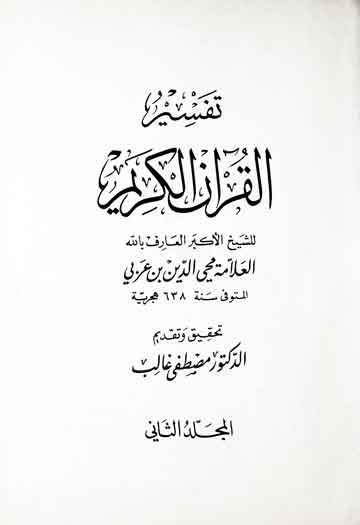 تفسير
القرآن الكريم
للشيخ الأكبر العارف بالله
العلامة محيي الدين بن عربي
المتوفى سنة ٦٣٨ هجرية
تحقيق وتقديم
الدكتور مصطفى غالب
المجلد الثاني